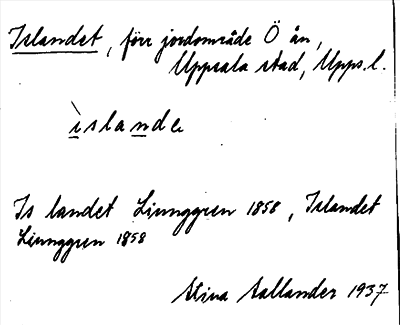 Islandet, förr jordområde Ö ån,
Uppsala stad, Upps. l.
ìslandе
Is landet Ljunggren 1858, Islandet
Ljunggren 1858
Stina Aallander 1937